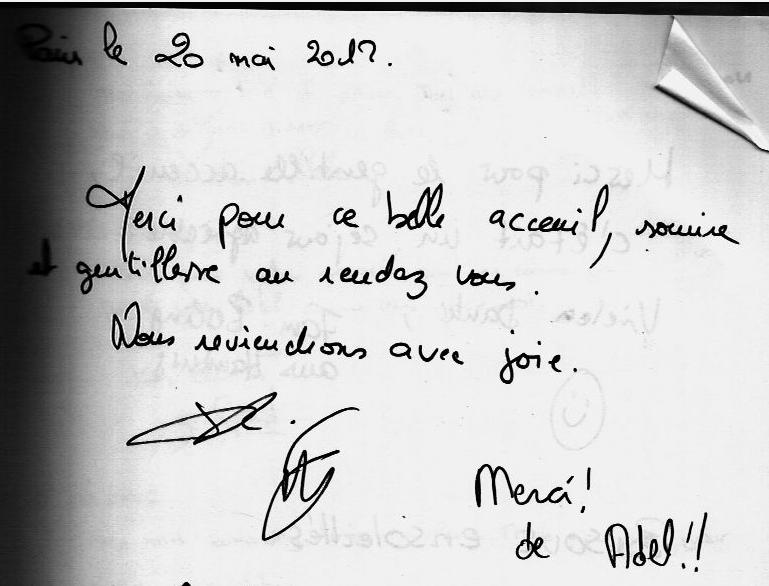 Paris le 20 mai 2017.
Merci pour ce belle acceuil, sourire
et gentillesse au rendez vous.
Nous reviendrons avec joie.
Merci!
de Adel!!